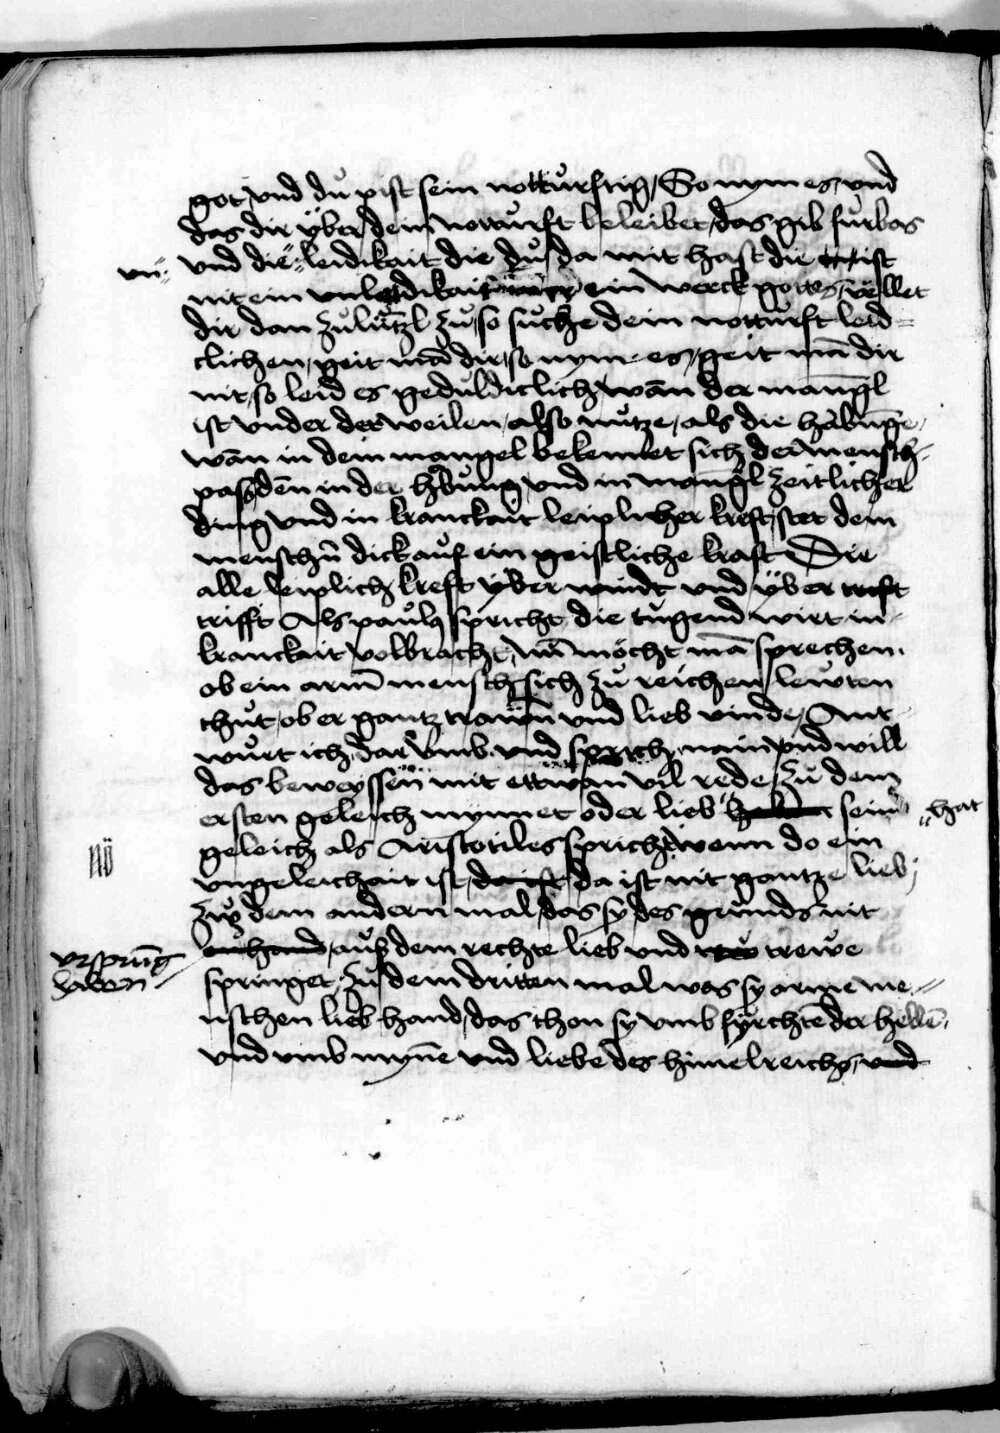 got vnd du pist sein notturftig / So nym es / vnd
das dir über dein notturft beleibet / das gib furbas
vn̄
vnd die leidikait die du da mit hast die ist
nit ein vnledikait ein werck gottes / vellet
dir dan zu lützl zu / so suche dein notturft leid=
clichen / geit mā dir / so nym es / geit mā dir
nit / so leid es geduldiclich / wān der mangl
ist vnder derweilen / also nutze / als die habunge /
wān in dem mangel bekennet sich der mensch
pas / den in der habung / vnd in mangl zeitlicher
ding vnd in kranckait leiplicher kreft / stet dem
menschn̄ dick auf ein geistliche kraft Die
alle leiplich kreft über windt vnd über trift
trifft Als paulus spricht die tugend wirt in
kranckait volbracht / Nū möcht mā sprechen
ob ein arm mensch sich zu reichen lewten
thut / ob er gantz trawn vnd lieb vinde / Ant
wurt ich dar vmb vnd sprich / nain vnd will
das beweyssen mit ettwan vil rede / zu dem
ersten geleich mynnet oder lieb haben sein
hat
geleich als Aristotiles spricht / wenn do ein
Nū
vngeleichait ist / da ist nit gantze lieb /
zu dem andern mal / das sy des grunds nit
vrsprūg
haben
enhand / auß dem rechte lieb vnd trewe
springet / zu dem dritten mal was sy arme me=
nschen lieb hand / das thon sy vmb fürchte der hellē
vnd vmb myn̄e vnd liebe des himelreichs / vnd